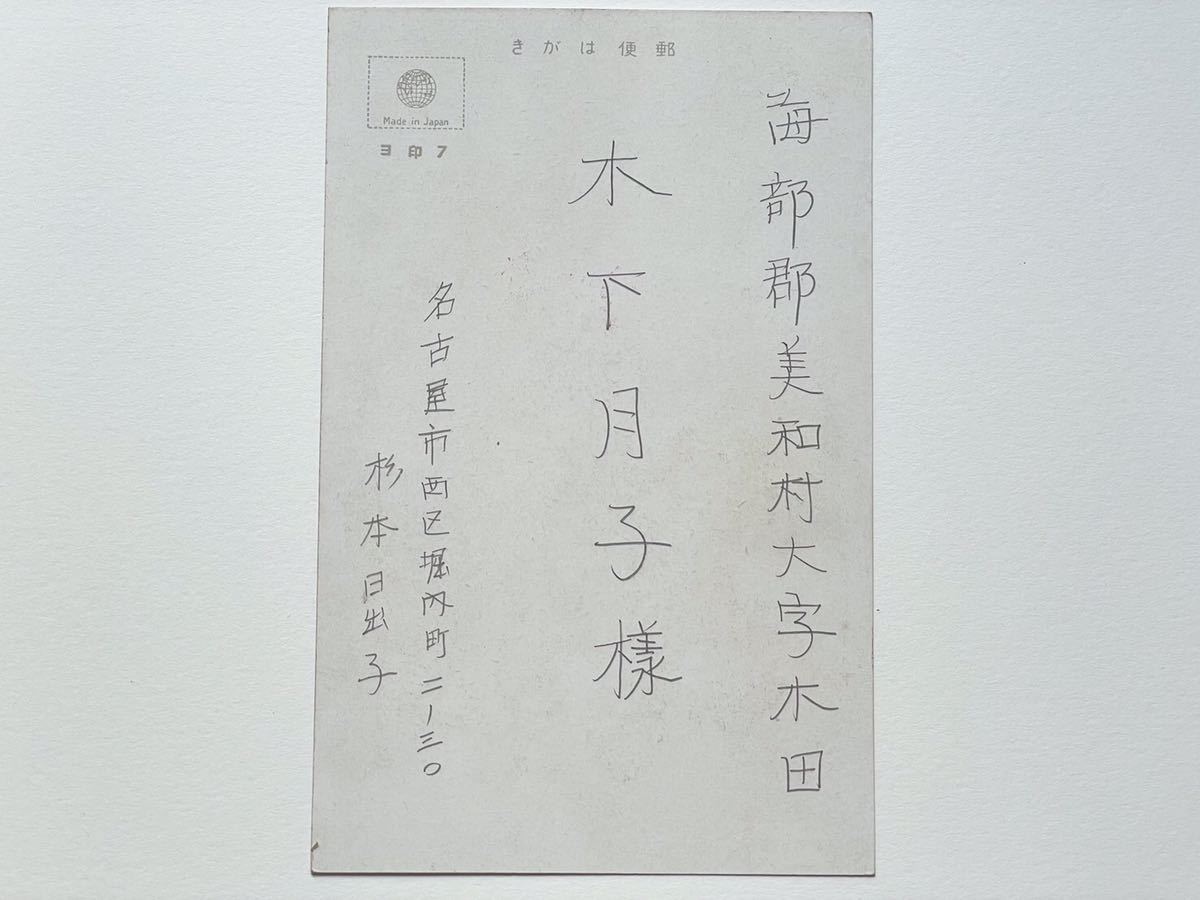 郵便はがき
Made in Japan
フ印ヨ
海部郡美和村大字木田
木下月子様
名古屋市西区堀内町二ー三〇
杉本日出子